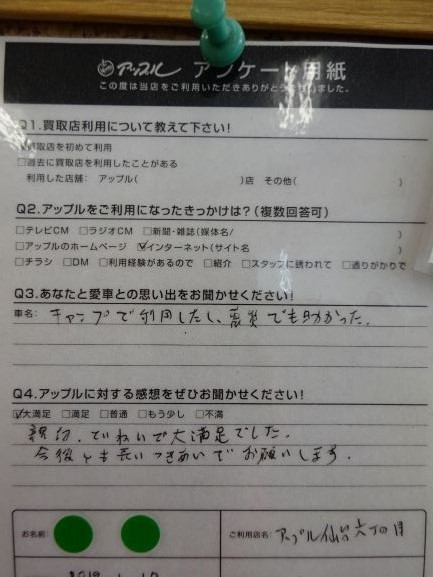 アップル アンケート用紙
この度は当店をご利用いただきありがとうございました。
Q1.買取店利用について教えて下さい!
買取店を初めて利用
□過去に買取店を利用したことがある
利用した店舗: アップル( )店 その他( )
Q2.アップルをご利用になったきっかけは?(複数回答可)
□テレビCM □ラジオCM □新聞・雑誌(媒体名/ )
□アップルのホームページ ☑インターネット(サイト名 )
□チラシ □DM □利用経験があるので □紹介 □スタッフに誘われて □通りがかりで
Q3.あなたと愛車との思い出をお聞かせください!
車名: キャンプで利用したし、震災でも助かった。
Q4.アップルに対する感想をぜひお聞かせください!
☑大満足 □満足 □普通 □もう少し □不満
親切、ていねいで大満足でした。
今後とも長いつきあいでお願いします。
お名前:
ご利用店名: アップル仙台六丁の目